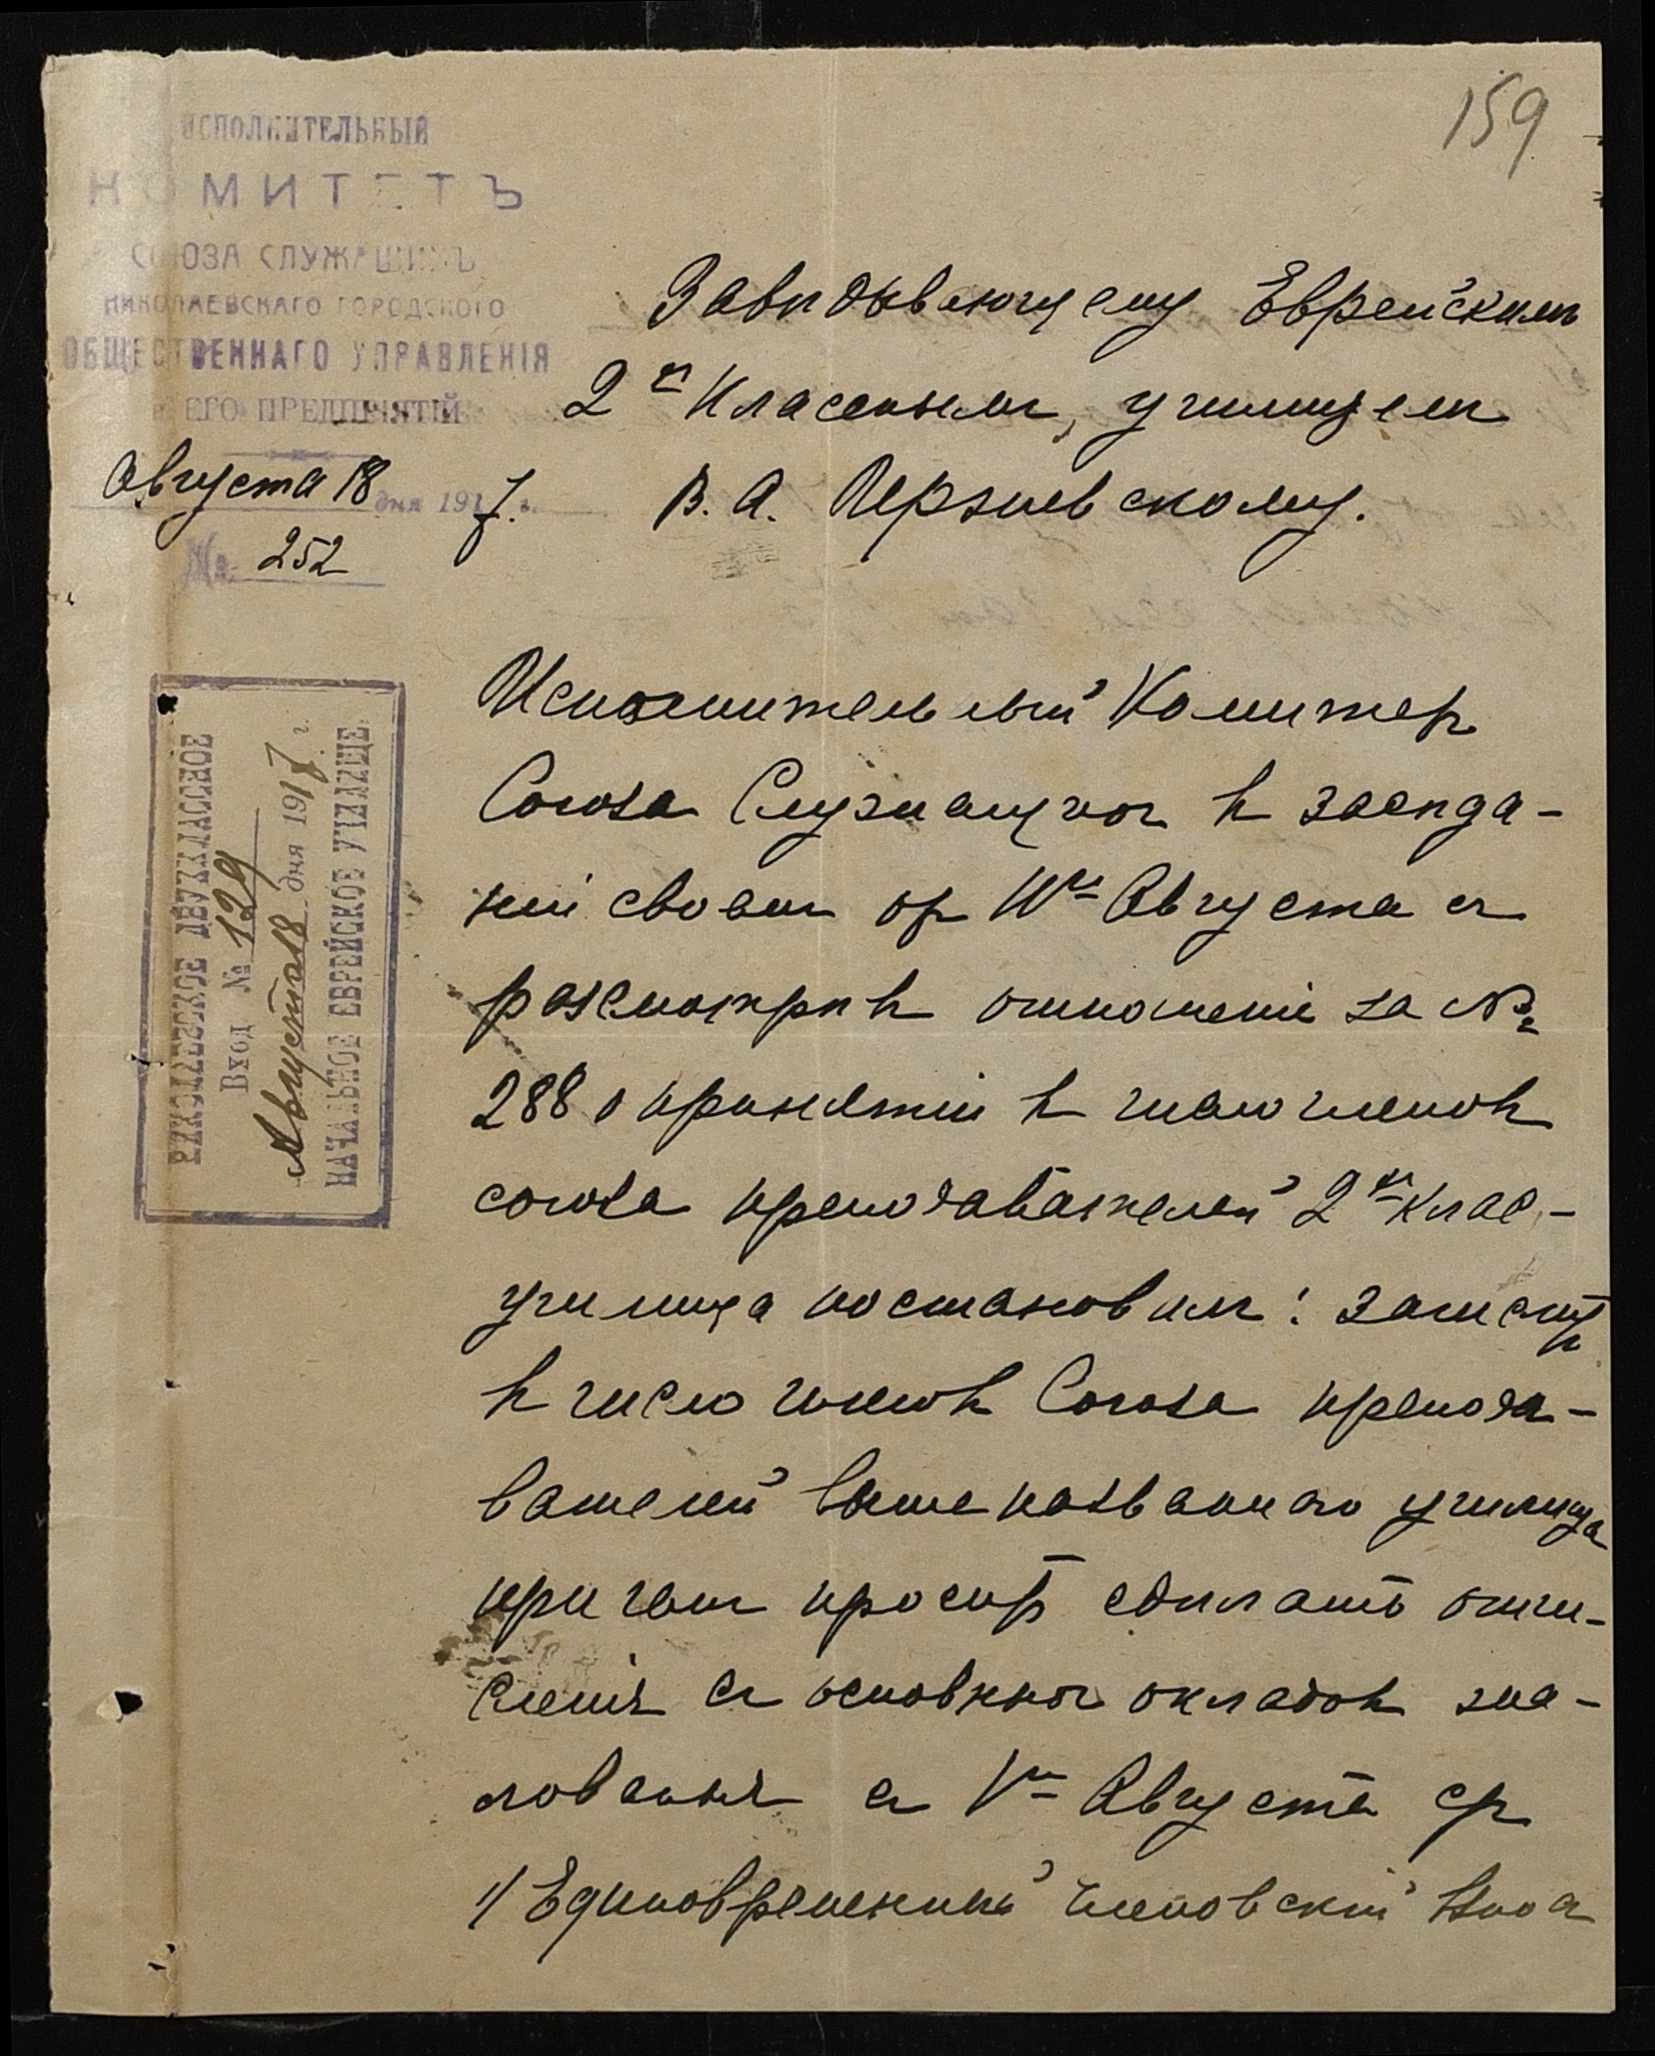 159
ИСПОЛНИТЕЛЬНЫЙ
КОМИТЕТЪ
СОЮЗА СЛУЖАЩИХЪ
НИКОЛАЕВСКАГО ГОРОДСКОГО
ОБЩЕСТВЕННАГО УПРАВЛЕНІЯ
и ЕГО ПРЕДПРІЯТІЙ
Августа 18 дня 1917 г.
№ 252
Завѣдывающему Еврейскимъ
2х Класснымъ училищемъ
В. А.
НИКОЛАЕВСКОЕ ДВУХКЛАССНОЕ
Вход № 129
Августа 18 дня 1917 г.
НАЧАЛЬНОЕ ЕВРЕЙСКОЕ УЧИЛИЩЕ
Исполнительный Комитет
Союза Служащихъ в засѣда-
ніи своемъ от Августа с
разсмотрѣв отношеніе за №
288 о принятіи в число членов
союза преподавателей 2х клас-
училища постановил: зачислить
в число членов Союза препода-
вателей вышеназванного училища
при чем просит сдѣлать отчи-
сленія с основных окладов жа-
лованья с Августа ср
1/ Единовременный членовскій взнос